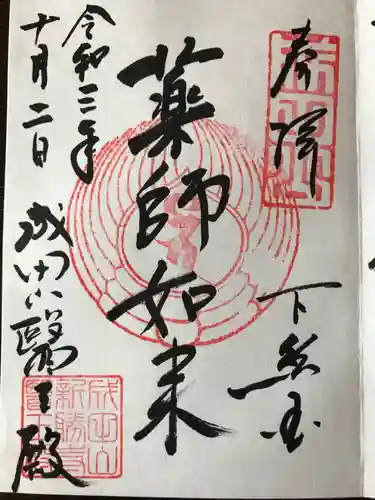 奉拝
下総国
薬師如来
令和三年
十月二日
成田山醫王殿
成田山
新勝寺